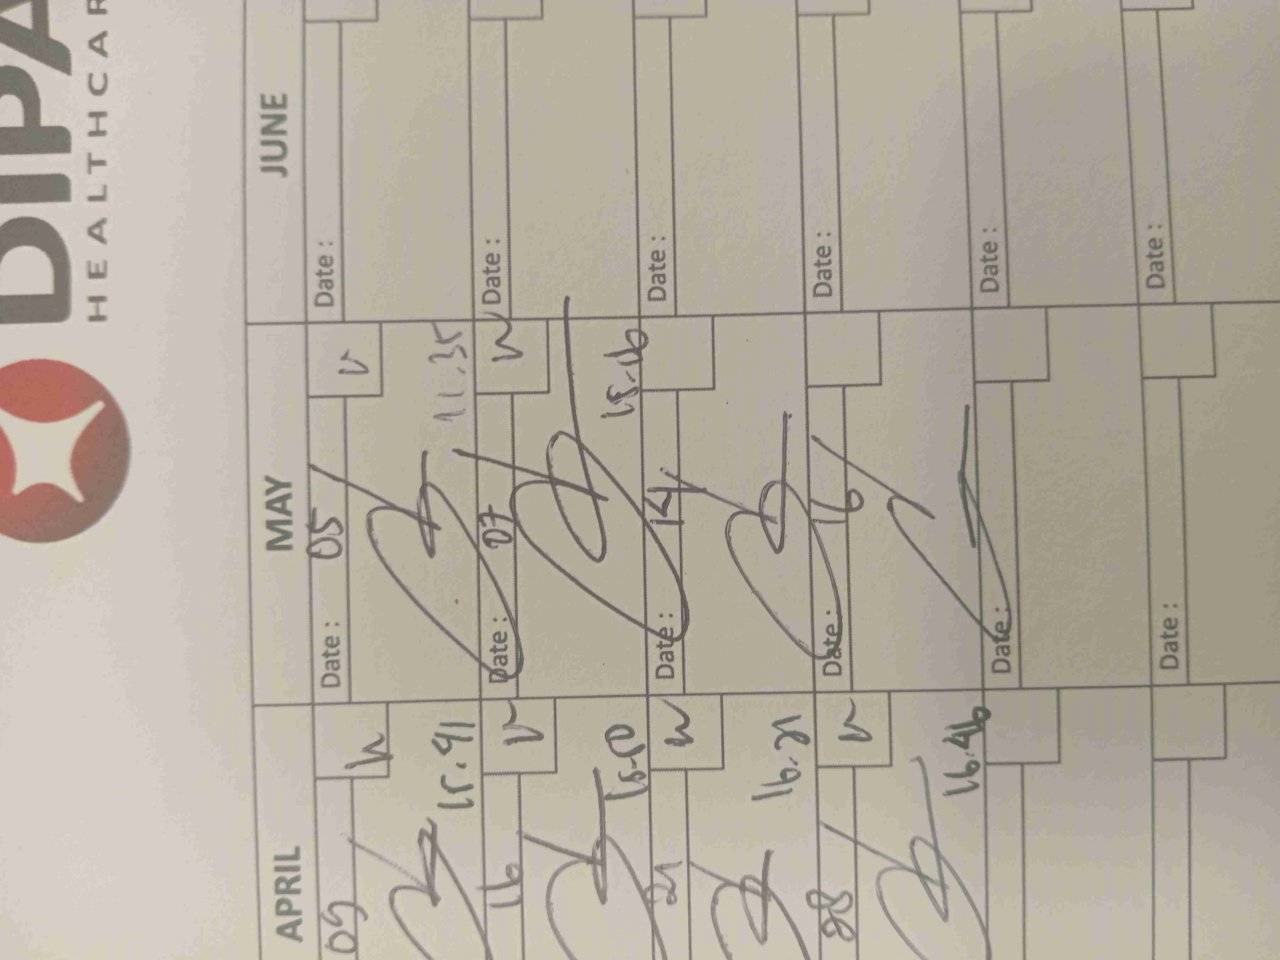 DIPA
HEALTHCAR
APRIL MAY JUNE
09 Date : 05 Date :
15.41 11.35
16 Date : 07 Date :
15.50 15.16
21 Date : 14 Date :
16.21
28 Date : 16 Date :
16.46
Date : Date :
Date : Date :